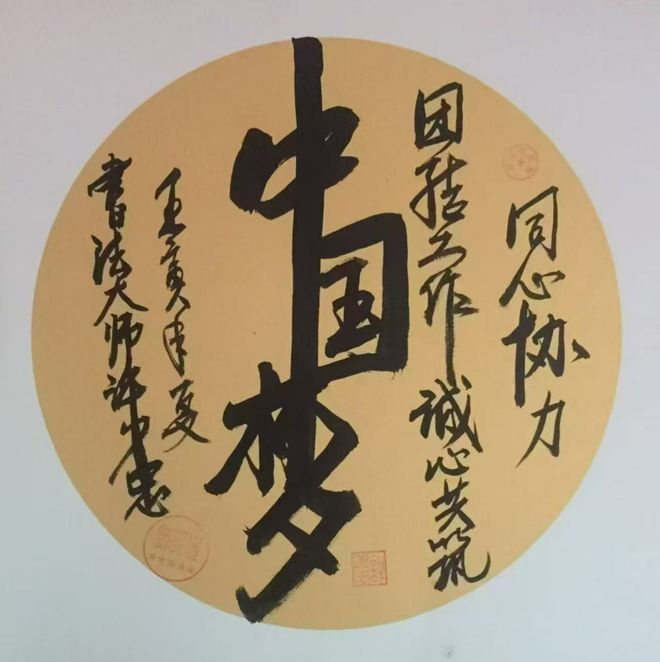 同心协力
团结工作诚心共筑
中国梦
壬寅年夏
书法大师许中忠